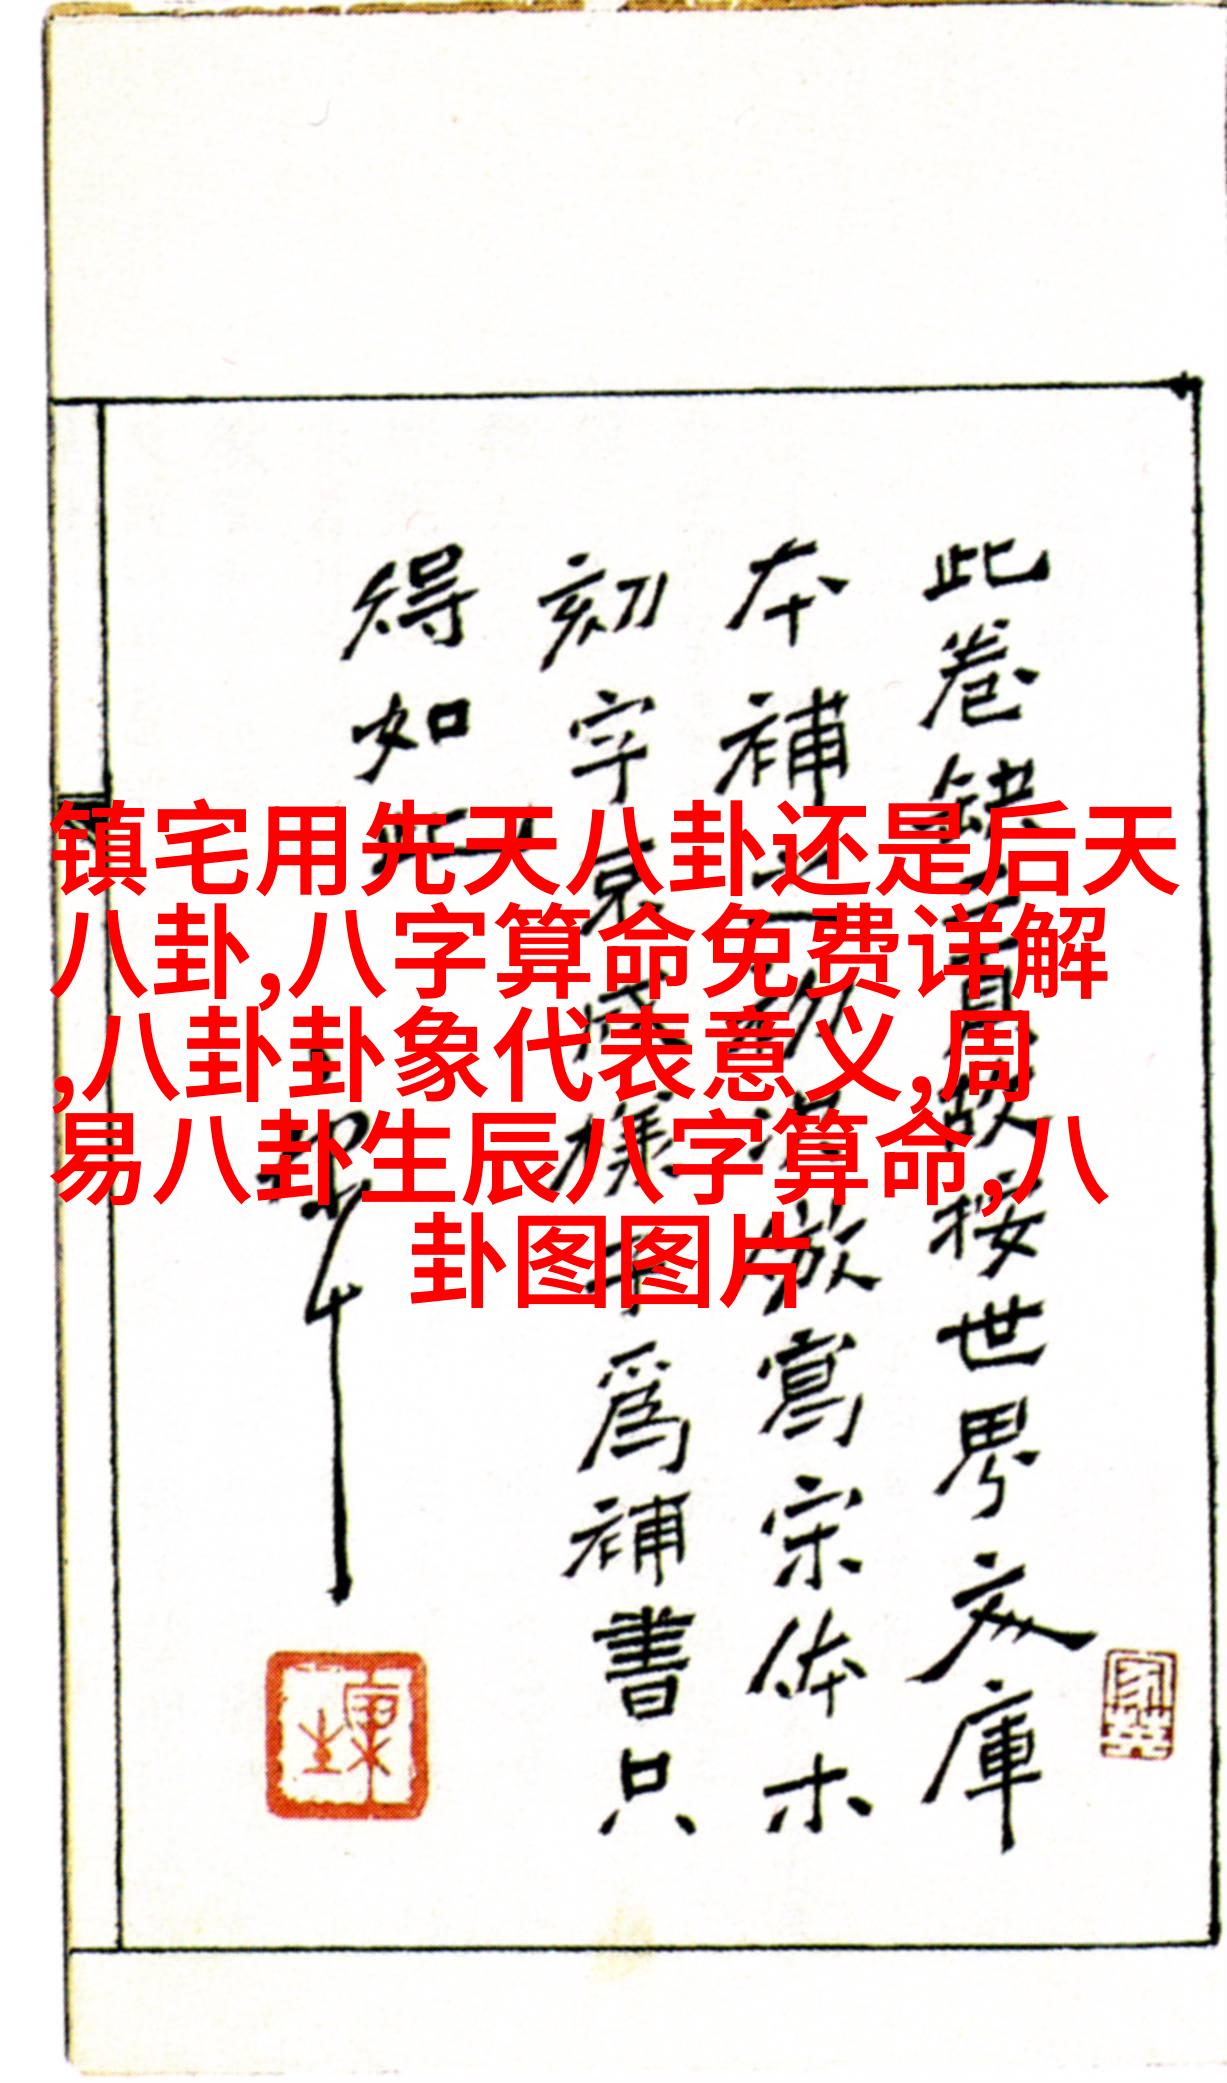 镇宅用先天八卦还是后天
八卦,八字算命免费详解
,八卦卦象代表意义,周
易八卦生辰八字算命,八
卦图图片
此卷缺百頁故按世界文庫
本補之初洪倣寫宗体木
刻字竟成樣子爲補書只
得如此
康生